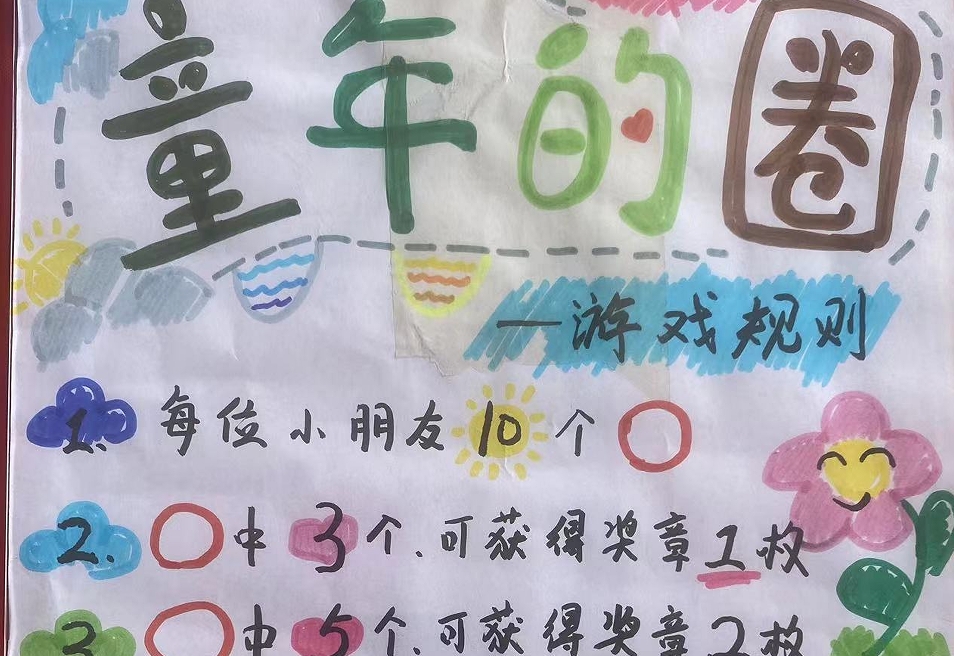 童年的圈
—游戏规则
1. 每位小朋友10个○
2. ○中3个.可获得奖章1枚
3. ○中5个.可获得奖章2枚